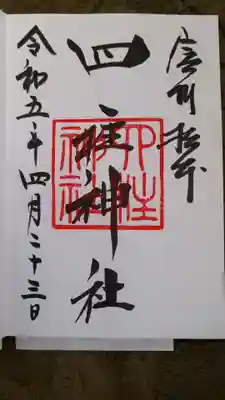 信州松本
四柱神社
四柱神社
令和五年四月二十三日